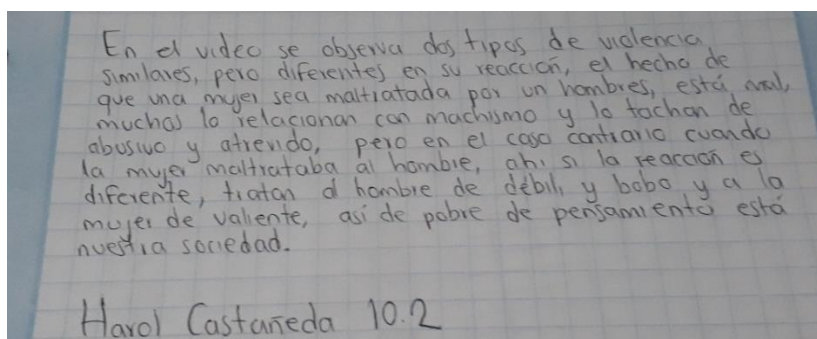 En el video se observa dos tipos de violencia
similares, pero diferentes en su reacción, el hecho de
que una mujer sea maltratada por un hombres, está mal,
muchos lo relacionan con machismo y lo tachan de
abusivo y atrevido, pero en el caso contrario cuando
la mujer maltrataba al hombre, ahi si la reacción es
diferente, tratan al hombre de débil, y bobo y a la
mujer de valiente, asi de pobre de pensamiento está
nuestra sociedad.
Harol Castañeda 10.2